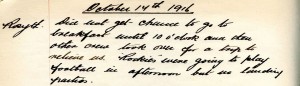 October 14th 1916
Did not get chance to go to
breakfast until 10 o'clock and then
other crew took over for a trip to
relieve us. "Cookies" were going to play
football in afternoon but no landing
parties.